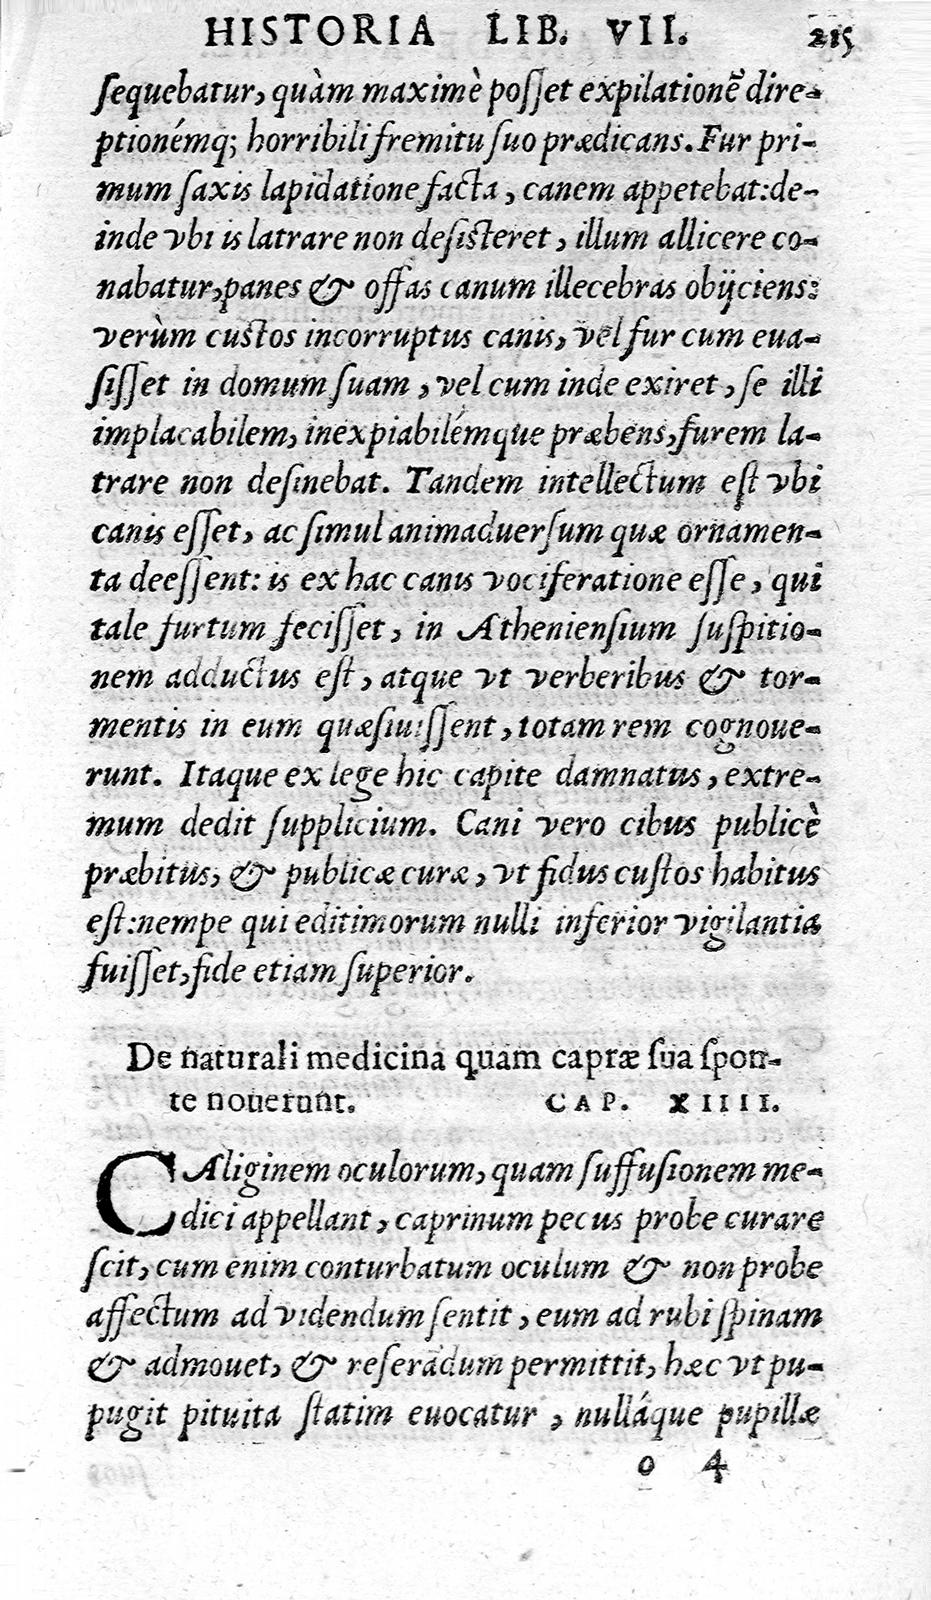 HISTORIA LIB. VII. 215
ſequebatur, quàm maximè poſſet expilationẽ dire-
ptionémq; horribili fremitu ſuo prædicans. Fur pri-
mum ſaxis lapidatione facta, canem appetebat: de-
inde vbi is latrare non deſiſteret, illum allicere co-
nabatur, panes & offas canum illecebras obijciens:
verùm cuſtos incorruptus canis, vel fur cum eua-
ſiſſet in domum ſuam, vel cum inde exiret, ſe illi
implacabilem, inexpiabilémque præbens, furem la-
trare non deſinebat. Tandem intellectum eſt vbi
canis eſſet, ac ſimul animaduerſum quæ ornamen-
ta deeſſent: is ex hac canis vociferatione eſſe, qui
tale furtum feciſſet, in Athenienſium ſuſpitio-
nem adductus eſt, atque vt verberibus & tor-
mentis in eum quæſiuiſſent, totam rem cognoue-
runt. Itaque ex lege hic capite damnatus, extre-
mum dedit ſupplicium. Cani vero cibus publicè
præbitus, & publicæ curæ, vt fidus cuſtos habitus
eſt: nempe qui editimorum nulli inferior vigilantia
fuiſſet, fide etiam ſuperior.
De naturali medicina quam capræ ſua ſpon-
te nouerunt. CAP. XIIII.
CAliginem oculorum, quam ſuffuſionem me-
dici appellant, caprinum pecus probe curare
ſcit, cum enim conturbatum oculum & non probe
affectum ad videndum ſentit, eum ad rubi ſpinam
& admouet, & reſerãdum permittit, hæc vt pu-
pugit pituita ſtatim euocatur, nulláque pupillæ
o 4